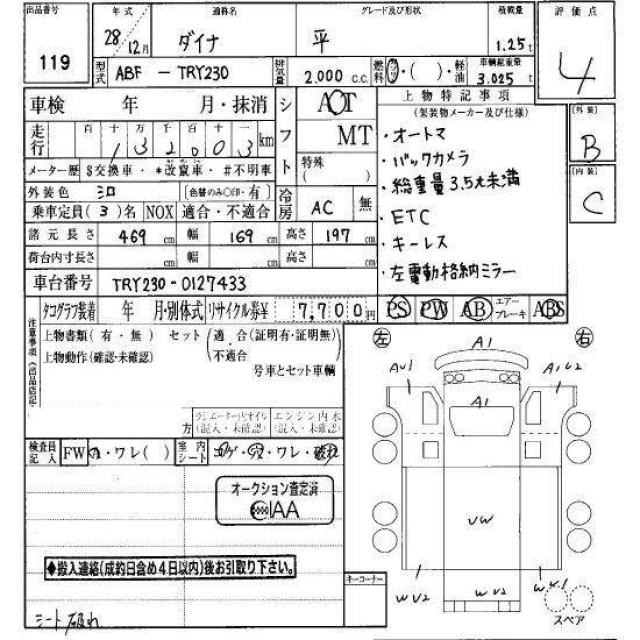 出品番号 年式 通称名 グレード及び形状 積載量 評価点
119 28年12月 ダイナ 平 1.25t 4
型式 ABF - TRY230 排気量 2.000 c.c. 燃料 ガソ・( )・軽油 車輌総重量 3.025t
車検 年 月・抹消 シフト AOT 上物特記事項 (外装) B
走行 百 十 万 千 百 十 一 (架装物メーカー及び仕様)
132003 km MT ・オートマ
メーター歴 $交換車・*改竄車・#不明車 特殊( ) ・バックカメラ (内装) C
外装色 シロ (色替のみ○印・有) 冷房 AC 無 ・総重量3.5t未満
乗車定員(3)名 NOX 適合・不適合 ・ETC
諸元長さ 469cm 幅 169cm 高さ 197cm ・キーレス
荷台内寸長さ cm 幅 cm 高さ cm ・左電動格納ミラー
車台番号 TRY230-0127433
タコグラフ装着 年 月・別体式 リサイクル券¥ 7,700円 PS PW AB エアーブレーキ ABS
注意事項(出品店記入)
上物書類(有・無) セット(適合(証明有・証明無)
上物動作(確認・未確認) ・不適合 号車とセット車輌
左 右
A1
AU1 A1U2
A1
ラジエーター内オイル エンジン内水
方(記入・未確認) (記入・未確認)
検査員記入 FW A・ワレ( ) 室内シート コゲ・シミ・ワレ・破れ
オークション査定済
CIAA
UW
◆搬入連絡(成約日含め4日以内)後お引取り下さい。
キーコーナー
WU2 WU2 WU1
シート破れ
スペア